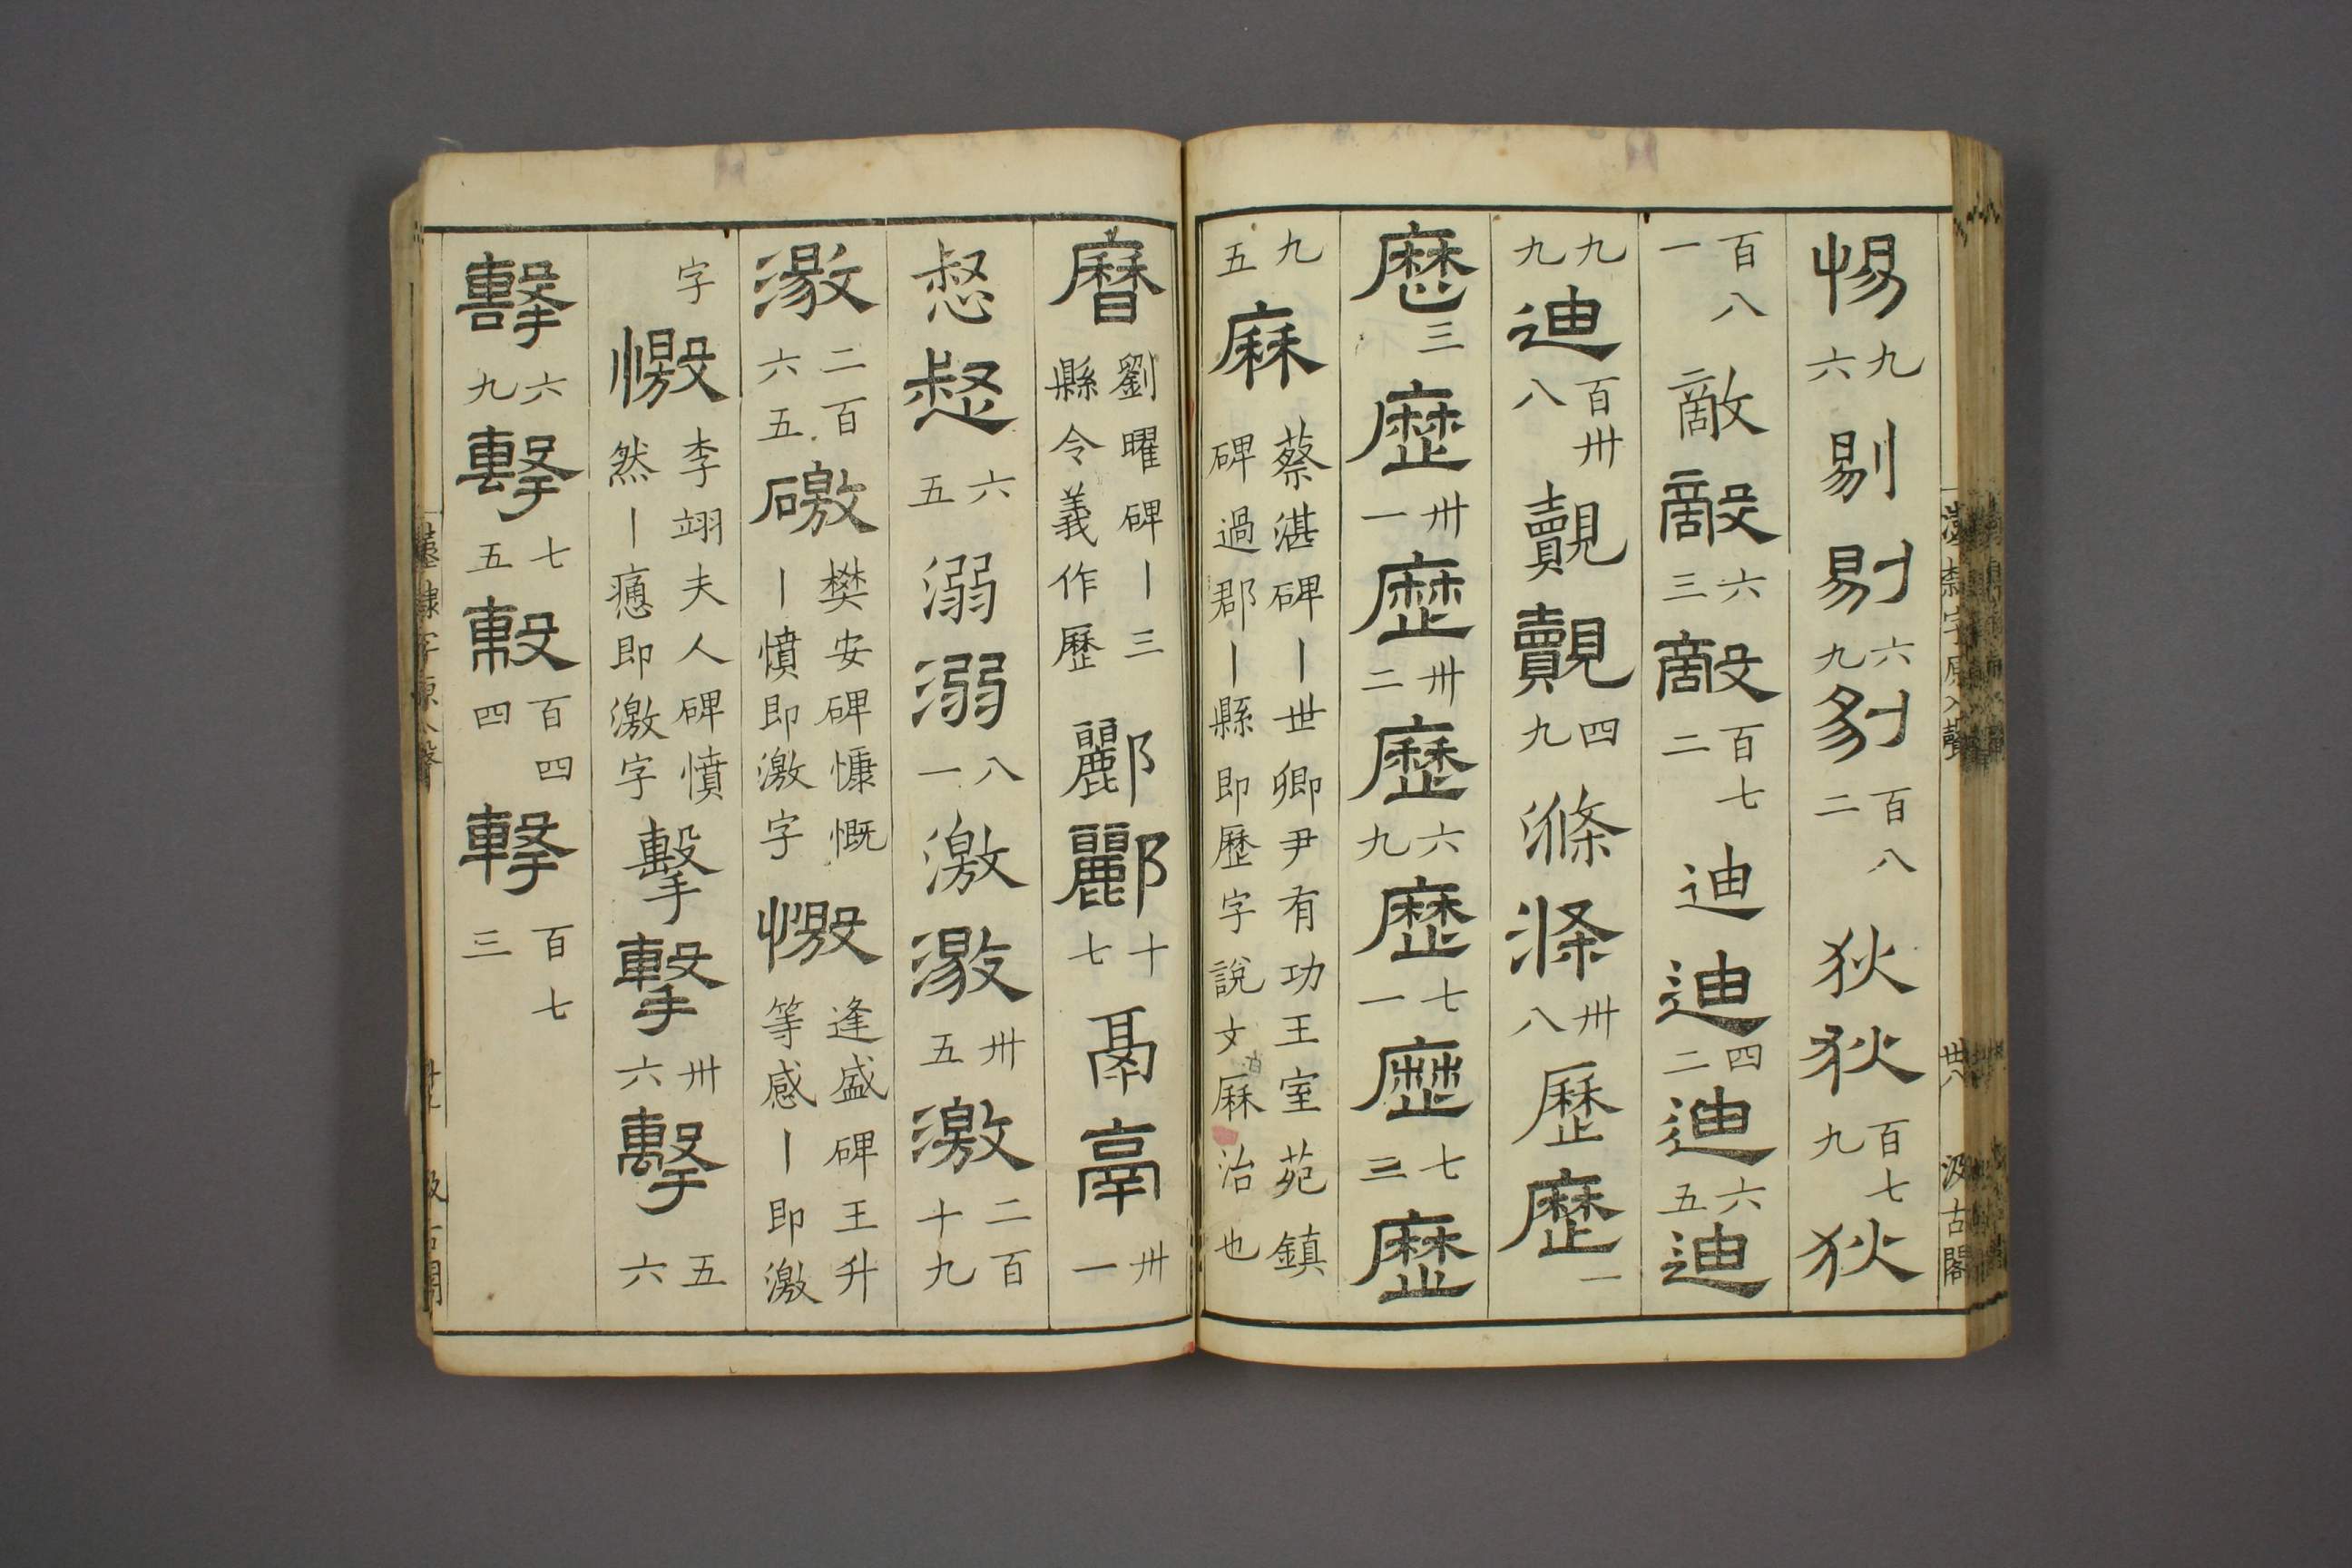 惕九六剔剔六九剔百八二狄狄百七九狄
百八一敵敵六三敵百七二迪迪四二迪六五迪
九九迪百卅八覿覿四九滌滌卅八歷歷一
歷三歷卅一歷卅二歷六九歷七一歷七三歷
九五麻蔡湛碑丨世卿尹有功王室苑鎮碑過郡丨縣即歷字說文厤治也
曆劉曜碑丨三縣令義作歷酈酈十七鬲鬲卅一
惄惄六五溺溺八一激激卅五激二百十九
激二百六五礉樊安碑慷慨丨憤即激字憿逢盛碑王升等感丨即激
字憿李翊夫人碑憤然丨癔即激字擊擊卅六擊五六
擊六九擊七五𣪠百四四擊百七三
漢隸字原入聲
汲古閣